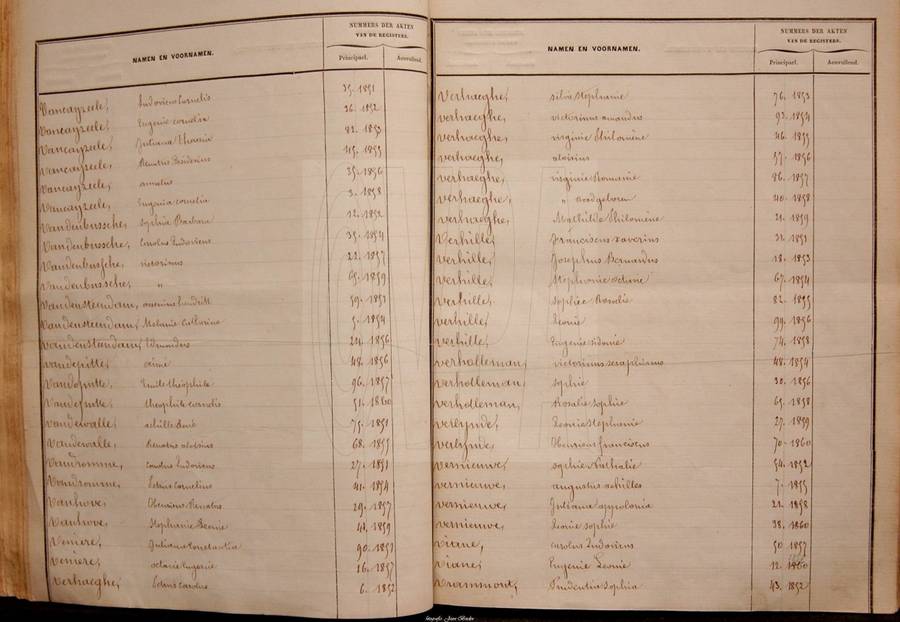 NAMEN EN VOORNAMEN.
NUMMERS DER AKTEN
VAN DE REGISTERS.
Principael. Aenvullend.
Vancayzeele, Ludovicus Cornelis 35. 1851
Vancayzeele, Eugenie Cornelia 36. 1852
Vancayzeele, Juliana 82. 1853
Vancayzeele, Renatus Desiderius 115. 1855
Vancayzeele, amatus 35. 1856
Vancayzeele, Eugenia Cornelia 3. 1858
Vandenbussche, Sophia Barbara 12. 1852
Vandenbussche, Carolus Ludovicus 35. 1854
Vandenbussche, victorinus 22. 1857
Vandenbussche, " 65. 1859
Vandensteendam, 59. 1851
Vandensteendam, Melanie Catharina 5. 1854
Vandensteendam, Edmundus 24. 1856
vandepitte, 48. 1856
Vandeputte, Emile théophile 96. 1857
Vandeputte, théophile Cornelis 51. 1860
vandewalle, achille 75. 1851
Vandewalle, Renatus aloisius 68. 1855
Vandromme, Carolus Ludovicus 27. 1851
Vandromme, Petrus Cornelius 41. 1854
Vanhove, Henricus Renatus 29. 1857
Vanhove, Stephanie Leonie 41. 1859
Veniere, Juliana Constantia 90. 1851
Veniere, octavie Eugenie 16. 1857
Verhaeghe, Petrus Carolus 6. 1852
NAMEN EN VOORNAMEN.
NUMMERS DER AKTEN
VAN DE REGISTERS.
Principael. Aenvullend.
Verhaeghe, silvie Stephanie 76. 1853
verhaeghe, victorinus amandus 93. 1854
verhaeghe, virginie Philomène 26. 1855
verhaeghe, aloisius 57. 1856
verhaeghe, virginie Romanie 86. 1857
verhaeghe, " doodgeboren 40. 1858
verhaeghe, Mathilde Philomène 21. 1859
Verhille, Franciscus xaverius 31. 1851
verhille, Josephus Bernardus 18. 1853
verhille, Stephanie octavie 67. 1854
verhille, Sophie Rosalie 82. 1855
verhille, Leonie 99. 1856
verhille, Eugenie sidonie 74. 1858
verholleman, victorinus seraphinus 48. 1854
verholleman, sophie 30. 1856
verholleman, Rosalie sophie 65. 1858
verlynde, Leonie Stephanie 27. 1859
verlynde, Henricus franciscus 70. 1860
vernieuwe, sophie Nathalie 54. 1852
vernieuwe, augustus achilles 7. 1855
vernieuwe, Juliana appolonia 21. 1858
vernieuwe, Leonie sophie 38. 1860
viane, carolus Ludovicus 50. 1857
viane, Eugenie Leonie 12. 1860
vrammont, Prudentia Sophia 43. 1852